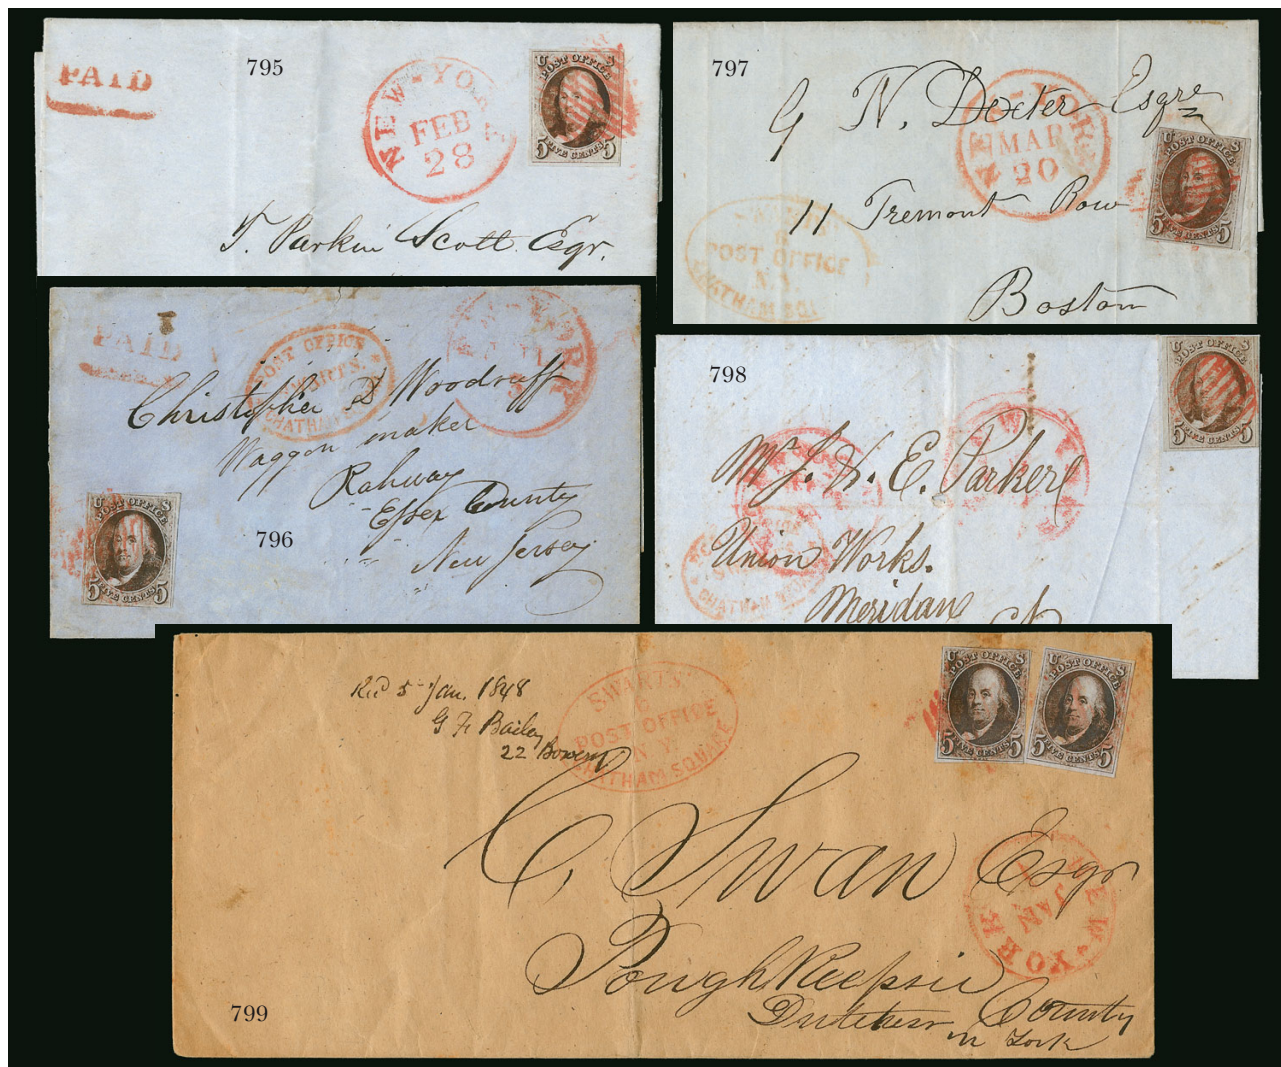 PAID
795
NEW-YORK
FEB
28
U S
POST OFFICE
5 FIVE CENTS 5
T. Parkin Scott Esqr.
797
G N. Dexter Esqre
NEW-YORK
MAR
20
U S
POST OFFICE
5 FIVE CENTS 5
11 Tremont Row
POST OFFICE
N.Y.
CHATHAM SQU
Boston
PAID
POST OFFICE
CHATHAM
Christopher D Woodruff
Waggon maker
Rahway
Essex County
New Jersey
U S
POST OFFICE
5 FIVE CENTS 5
796
798
U S
POST OFFICE
5 FIVE CENTS 5
NEW Y
E. Parker
Union Works.
CHATHAM
Meridan
Recd 5 Jan. 1848
G F Bailey
22 Bowery
SWARTS'
6
POST OFFICE
N.Y.
CHATHAM SQUARE
U S
POST OFFICE
5 FIVE CENTS 5
U S
POST OFFICE
5 FIVE CENTS 5
C, Swan Esqr
NEW-YORK
JAN
Poughkeepsie
Dutchess County
N York
799